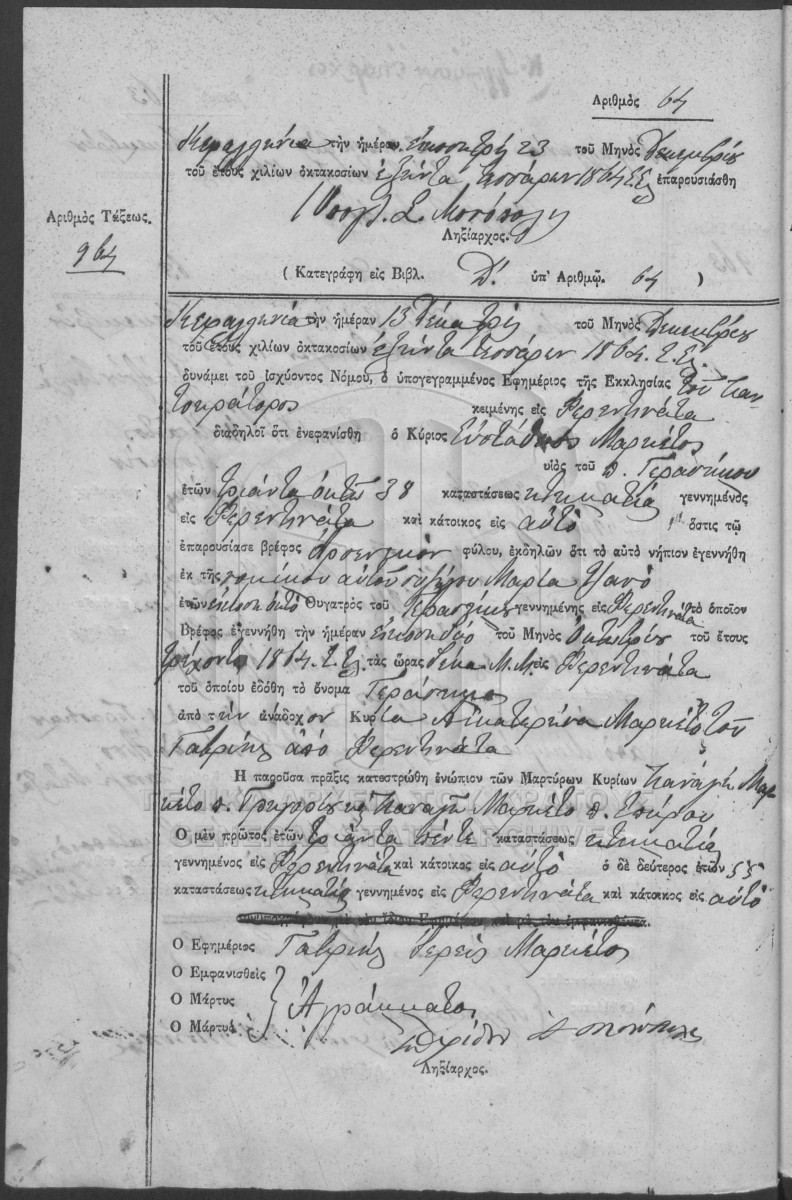 Αριθμὸς 64
Κεφαλληνία τὴν ἡμέραν εἰκοστρῇ 23 τοῦ Μηνὸς Δεκεμβρίου
τοῦ ἔτους χιλίων ὀκτακοσίων ἑξῆντα τεσσάρων 1864 Ε.Ε. ἐπαρουσιάσθη
Ληξίαρχος.
Αριθμὸς Τάξεως.
964
( Κατεγράφη εἰς Βιβλ. Δ'. ὑπ' Αριθμῷ. 64 )
Κεφαλληνία τὴν ἡμέραν 13 δέκα τρῇς τοῦ Μηνὸς Δεκεμβρίου
τοῦ ἔτους χιλίων ὀκτακοσίων ἑξῆντα τεσσάρων 1864. Ε. Ε.
δυνάμει τοῦ ἰσχύοντος Νόμου, ὁ ὑπογεγραμμένος Ἐφημέριος τῆς Εκκλησίας τοῦ Παν-
τοκράτορος κειμένης εἰς Φερεντηνάτα
διαδηλοῖ ὅτι ἐνεφανίσθη ὁ Κύριος Εὐστάθιος Μαρκέτος
υἱὸς τοῦ π. Γερασήμου
ἐτῶν τριάντα ὀκτὼ 38 καταστάσεως κτηματίας γεννημένος
εἰς Φερεντηνάτα καὶ κάτοικος εἰς αὐτὸ ὅστις τῷ
ἐπαρουσίασε βρέφος ἀρσενικὸν φύλου, ἐκδηλῶν ὅτι τὸ αὐτὸ νήπιον ἐγεννήθη
ἐκ τῆς νομίμου αὐτοῦ συζύγου Μαρία
ἐτῶν εἴκοση ὀκτὸ Θυγατρὸς τοῦ Γερασήμου γεννημένης εἰς Φερεντηνάτα τὸ ὁποῖον
Βρέφος ἐγεννήθη τὴν ἡμέραν εἴκοση δύο τοῦ Μηνὸς Ὀκτωβρίου τοῦ ἔτους
τρέχοντος 1864. Ε. Ε. τὰς ὥρας δέκα Μ.Μ. εἰς Φερεντηνάτα
τοῦ ὁποίου ἐδόθη τὸ ὄνομα Γεράσημος
ἀπὸ τὴν ἀνάδοχον Κυρία Αἰκατερήνα Μαρκέτο τοῦ
Γαβρίλης ἀπὸ Φερεντηνάτα
Η παροῦσα πρᾶξις κατεστρώθη ἐνώπιον τῶν Μαρτύρων Κυρίων Παναγῆ Μαρ-
κέτο π. Γρηγορίου καὶ Παναγῆ Μαρκέτο π. Σπύρου
Ο μὲν πρῶτος ἐτῶν τριάντα πέντε καταστάσεως κτηματίας
γεννημένος εἰς Φερεντηνάτα καὶ κάτοικος εἰς αὐτὸ ὁ δὲ δεύτερος ἐτῶν 55
καταστάσεως κτηματίας γεννημένος εἰς Φερεντηνάτα καὶ κάτοικος εἰς αὐτὸ
Ο Εφημέριος Γαβρίλης Ἱερεὺς Μαρκέτος
Ο Εμφανισθεὶς
Ο Μάρτυς Ἀγράμματοι
Ο Μάρτυς
Ληξίαρχος.
ΓΕΝΙΚΑ ΑΡΧΕΙΑ ΤΟΥ ΚΡΑΤΟΥΣ
GENERAL STATE ARCHIVES